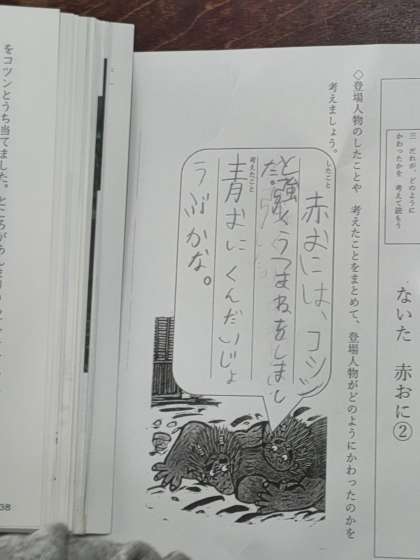 三 だれが、どのように
かわったかを 考えて読もう
ないた 赤おに②
◇登場人物のしたことや 考えたことをまとめて、登場人物がどのようにかわったのかを
考えましょう。
したこと
赤おには、コツン
と強くうつまねをしまし
た。
考えたこと
青おにくんだいじょ
うぶかな。
をコツンとうち当てました。ところがあんまり
38